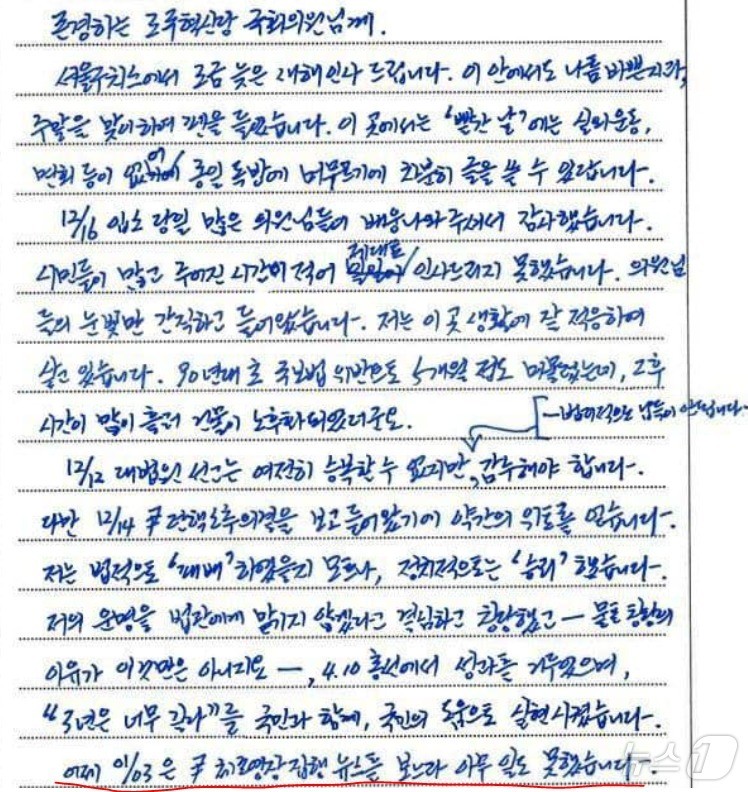 존경하는 조국혁신당 국회의원님께.
서울구치소에서 조금 늦은 새해인사 드립니다. 이 안에서도 나름 바쁜지라,
주말을 맞이하여 펜을 들었습니다. 이 곳에서는 '빨간 날'에는 실외운동,
면회 등이 없어 종일 독방에 머무르기에 차분히 글을 쓸 수 있답니다.
12/16 입소 당일 많은 의원님들이 배웅나와주셔서 감사했습니다.
시민들이 많고 주어진 시간이 적어 제대로 인사드리지 못했습니다. 의원님
들의 눈빛만 간직하고 들어왔습니다. 저는 이 곳 생활에 잘 적응하여
살고 있습니다. 90년대 초 국보법 위반으로 5개월 정도 머물렀는데, 그 후
시간이 많이 흘러 건물이 노후화되었더군요.
- 법리적으로 납득이 안됩니다-
12/12 대법원 선고는 여전히 승복할 수 없지만, 감수해야 합니다.
다만 12/14 尹 탄핵소추의결을 보고 들어왔기에 약간의 위로를 얻습니다.
저는 법적으로 '패배'하였을지 모르나, 정치적으로는 '승리'했습니다.
저의 운명을 법관에게 맡기지 않겠다고 결심하고 창당했고 — 물론 창당의
이유가 이것만은 아니지요 —, 4.10 총선에서 성과를 거두었으며,
"3년은 너무 길다"를 국민과 함께, 국민의 도움으로 실현시켰습니다.
어제 01/03은 尹 체포영장 집행 뉴스를 보느라 아무 일도 못했습니다.
뉴스1